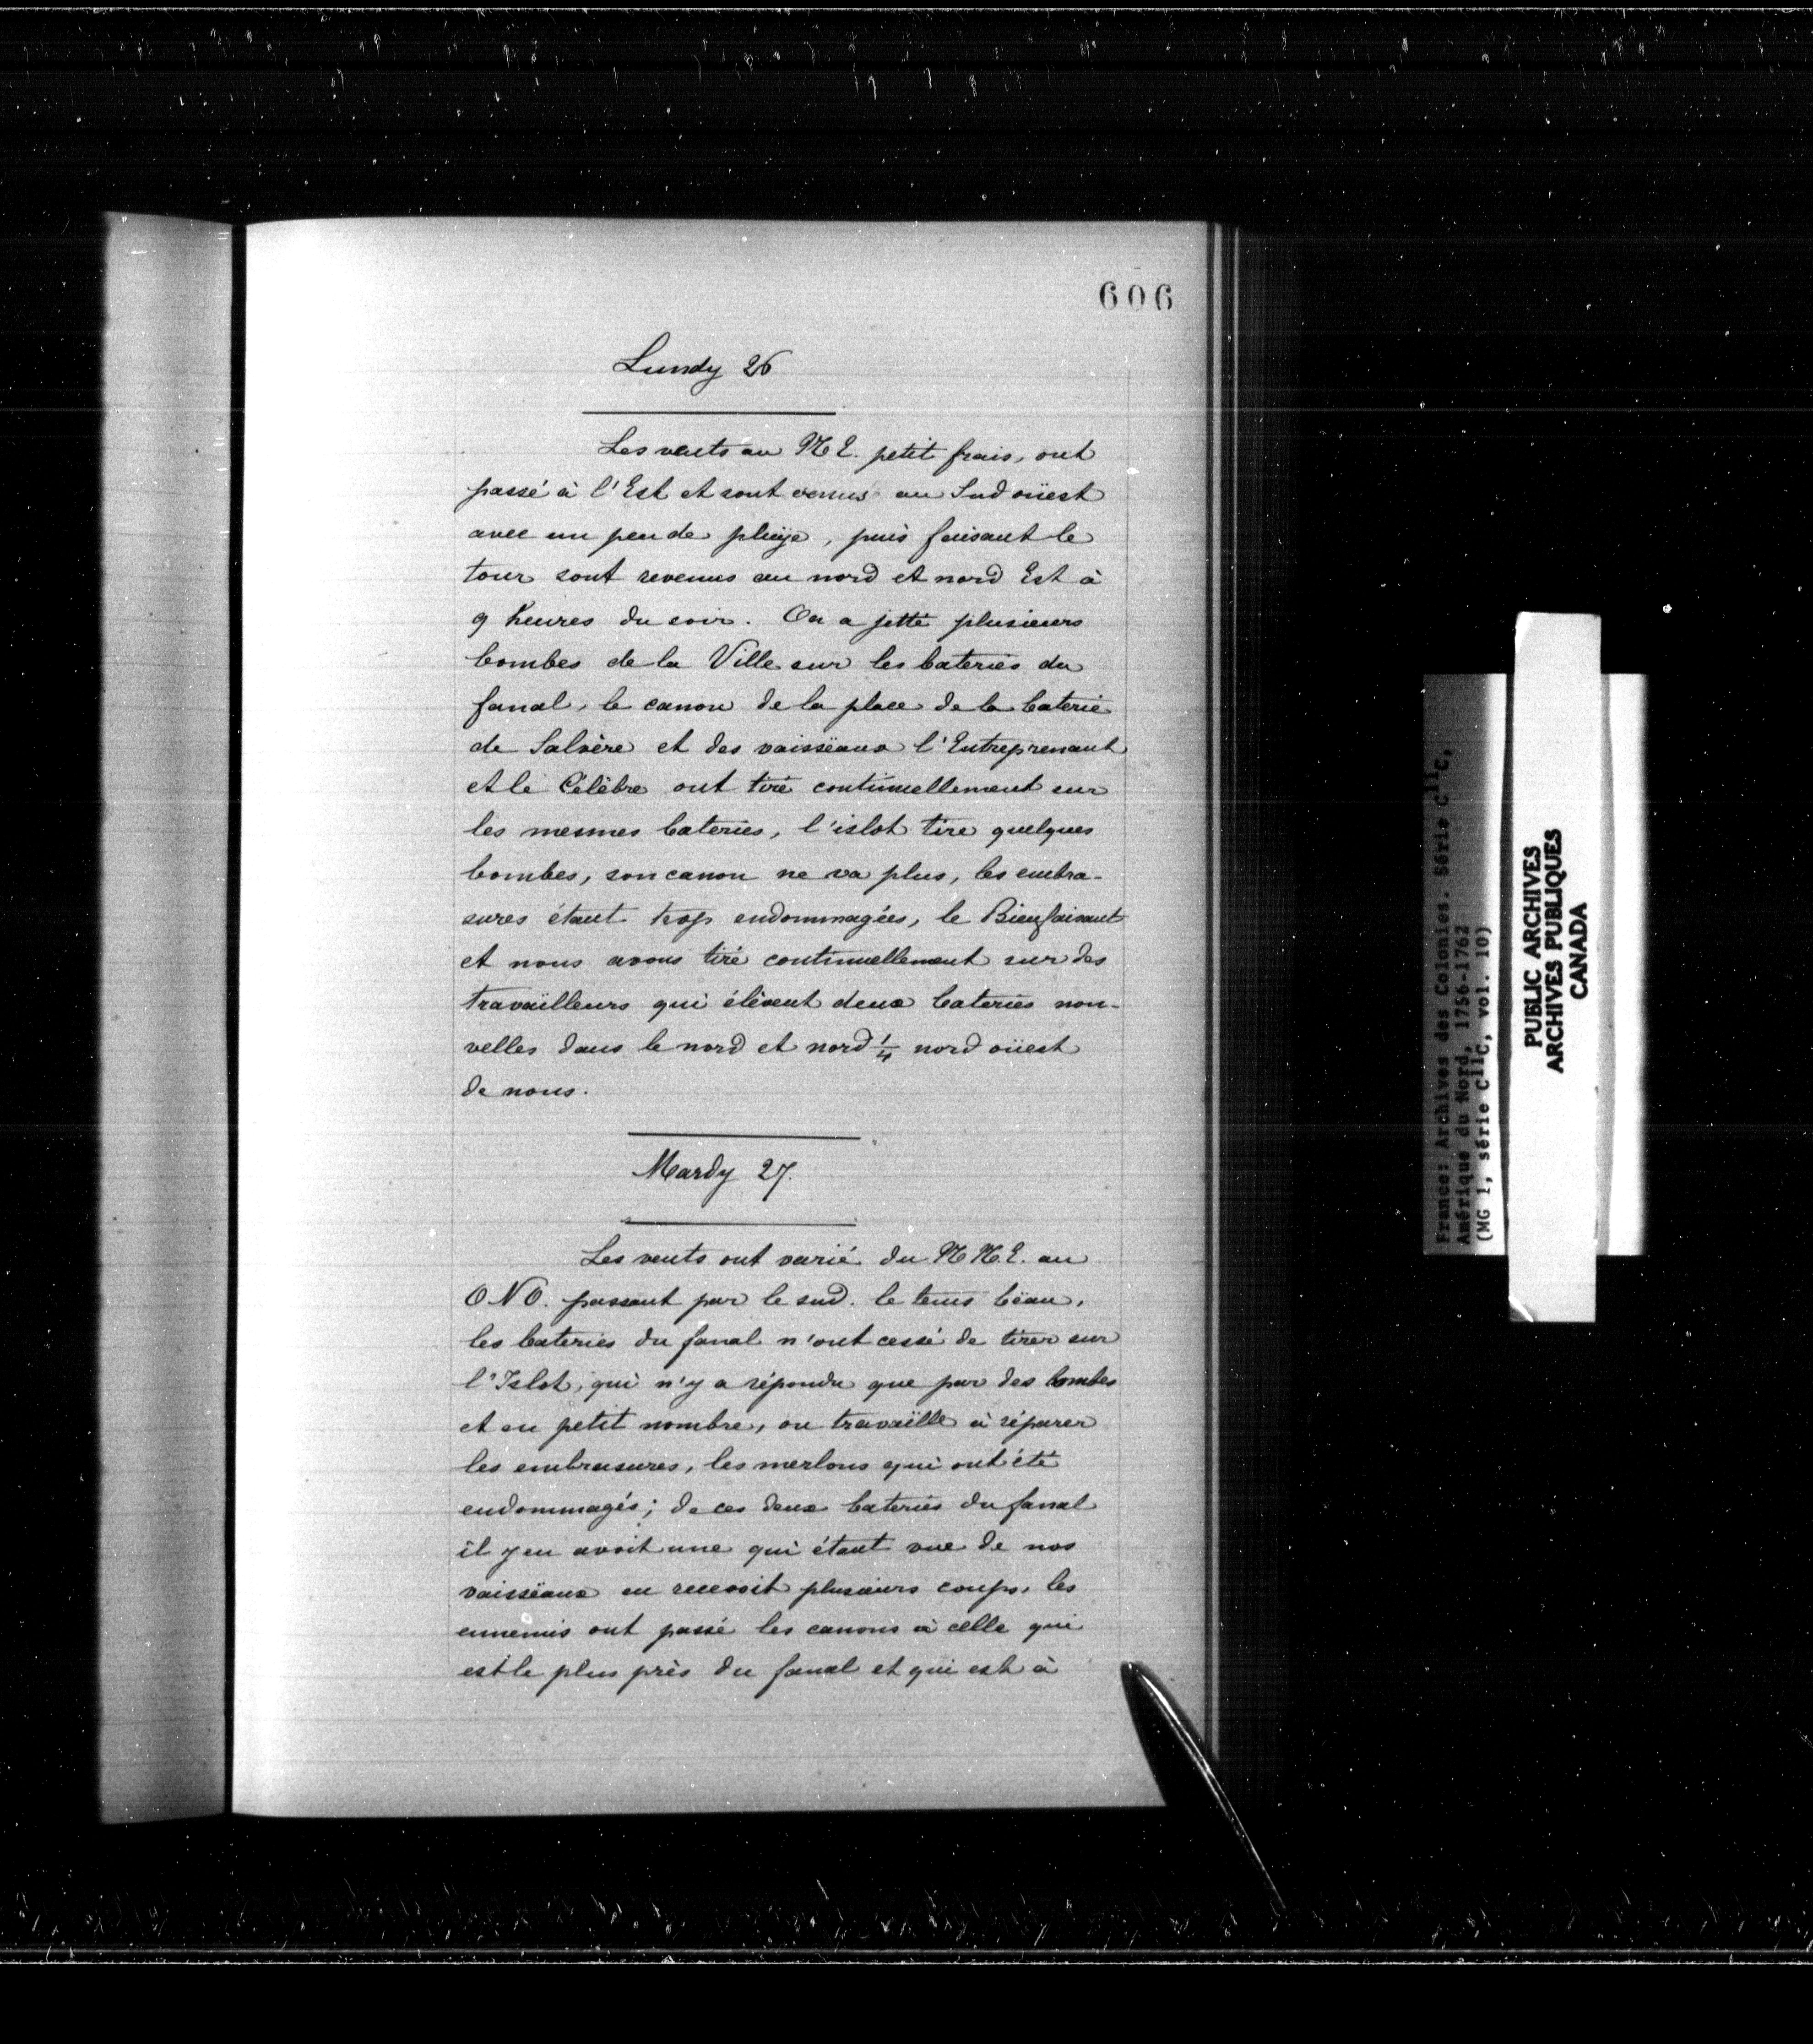 606
Lundy 26
Les vents au NE. petit frais, ont
passé à l'Est et sont venus au Sud oüest
avec un peu de pluÿe, puis faisant le
tour sont revenus au nord et nord Est à
9 heures du soir. On a jetté plusieurs
bombes de la Ville sur les bateries du
fanal, le canon de la place de la baterie
de Salvère et des vaissëaux l'Entreprenant
et le Célèbre ont tiré continuellement sur
les mesmes bateries, l'islot tire quelques
bombes, son canon ne va plus, les embra-
sures étant trop endommagées, le Bienfaisant
et nous avons tiré continuellement sur des
travaïlleurs qui élèvent deux bateries nou-
velles dans le nord et nord 1/4 nord oüest
de nous.
Mardy 27.
Les vents ont varié du NNE. au
ONO. passant par le sud. le tems bëau,
les bateries du fanal n'ont cessé de tirer sur
l'Islot, qui n'y a répondu que par des bombes
et en petit nombre, on travaïlle à réparer
les embrasures, les merlons qui ont été
endommagés; de ces deux bateries du fanal
il y en avoit une qui étant vue de nos
vaissëaux en recevoit plusieurs coups, les
ennemis ont passé les canons à celle qui
est le plus près du fanal et qui est à
France: Archives des Colonies. Série C11C,
Amérique du Nord, 1756-1762
(MG 1, série C11C, vol. 10)
PUBLIC ARCHIVES
ARCHIVES PUBLIQUES
CANADA